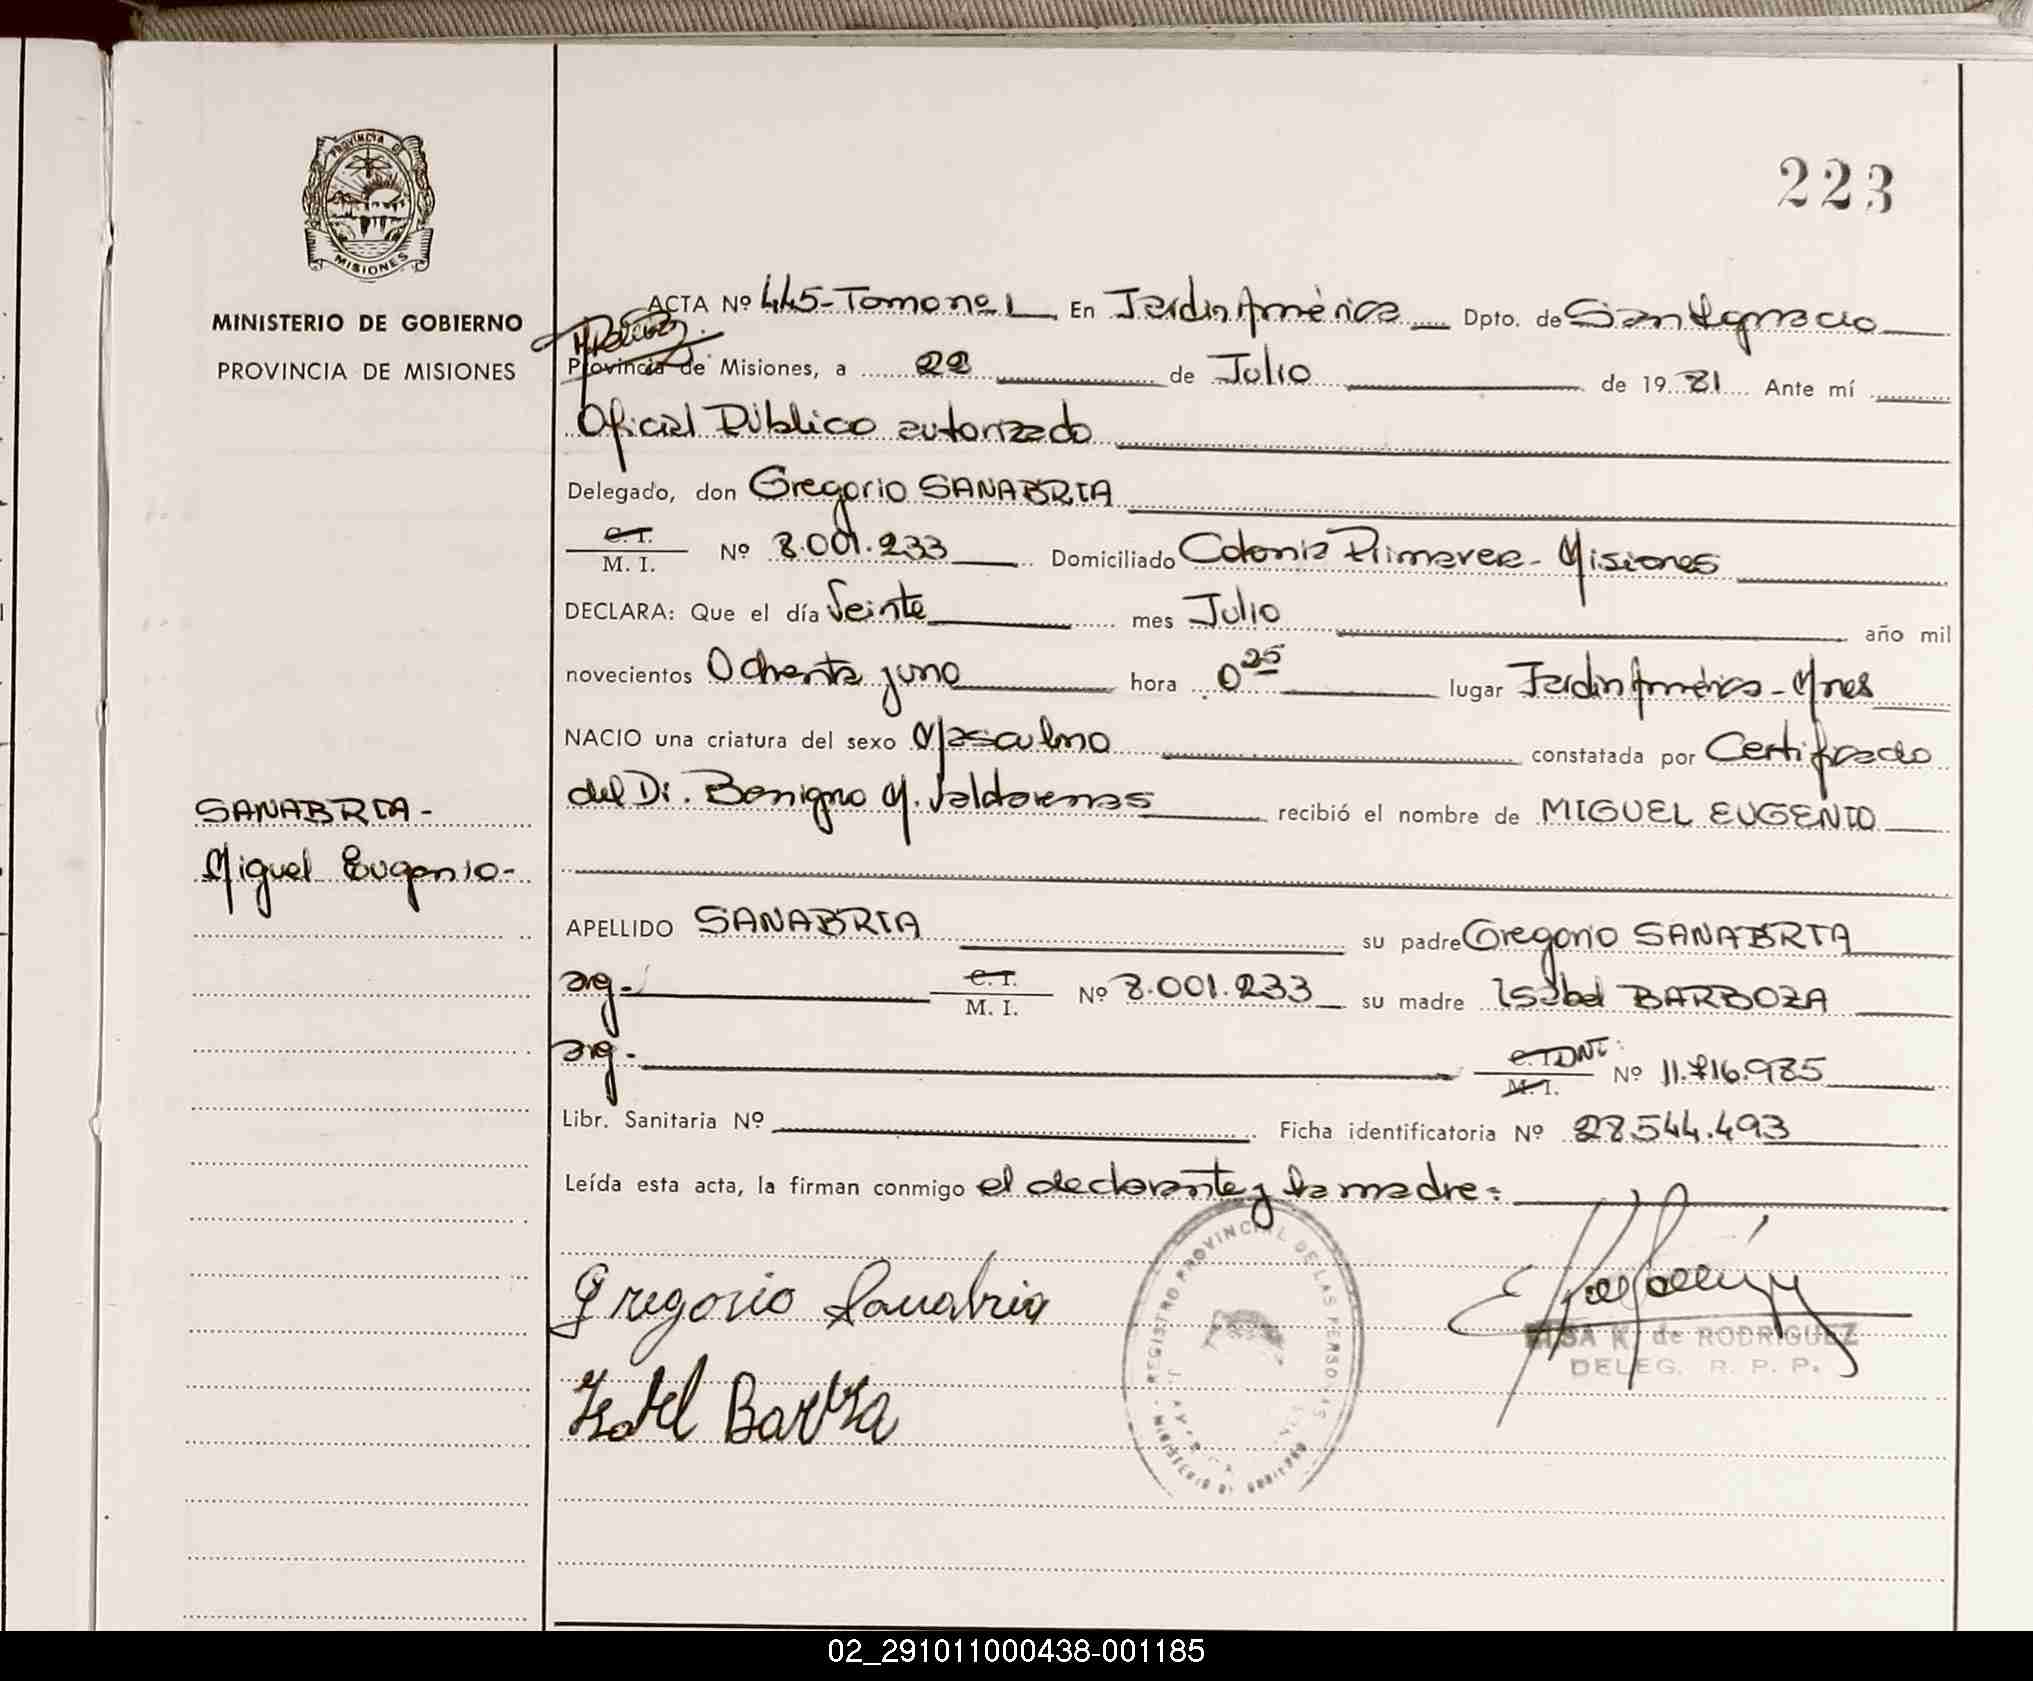 223
PROVINCIA DE
MISIONES
MINISTERIO DE GOBIERNO
PROVINCIA DE MISIONES
SANABRIA-
Miguel Eugenio-
ACTA Nº 445-Tomo nº 1 En Jardin América Dpto. de San Ignacio
Provincia de Misiones, a 22 de Julio de 1981 Ante mí
Oficial Público autorizado
Delegado, don Gregorio SANABRIA
C. I.
M. I. Nº 8.001.233 Domiciliado Colonia Primavera- Misiones
DECLARA: Que el día Veinte mes Julio año mil
novecientos Ochenta y uno hora 0 25 lugar Jardin América- Mnes
NACIO una criatura del sexo Masculino constatada por Certificado
del Dr. Benigno M. Valdovenas recibió el nombre de MIGUEL EUGENIO
APELLIDO SANABRIA su padre Gregorio SANABRIA
arg- C. I.
M. I. Nº 8.001.233 su madre Isabel BARBOZA
arg- C. I. DNI:
M. I. Nº 11.716.985
Libr. Sanitaria Nº Ficha identificatoria Nº 28.544.493
Leída esta acta, la firman conmigo el declarante y la madre-
Gregorio Sanabria
Isabel Barboza
REGISTRO PROVINCIAL DE LAS PERSONAS
ELSA K. de RODRIGUEZ
DELEG. R. P. P.
02_291011000438-001185